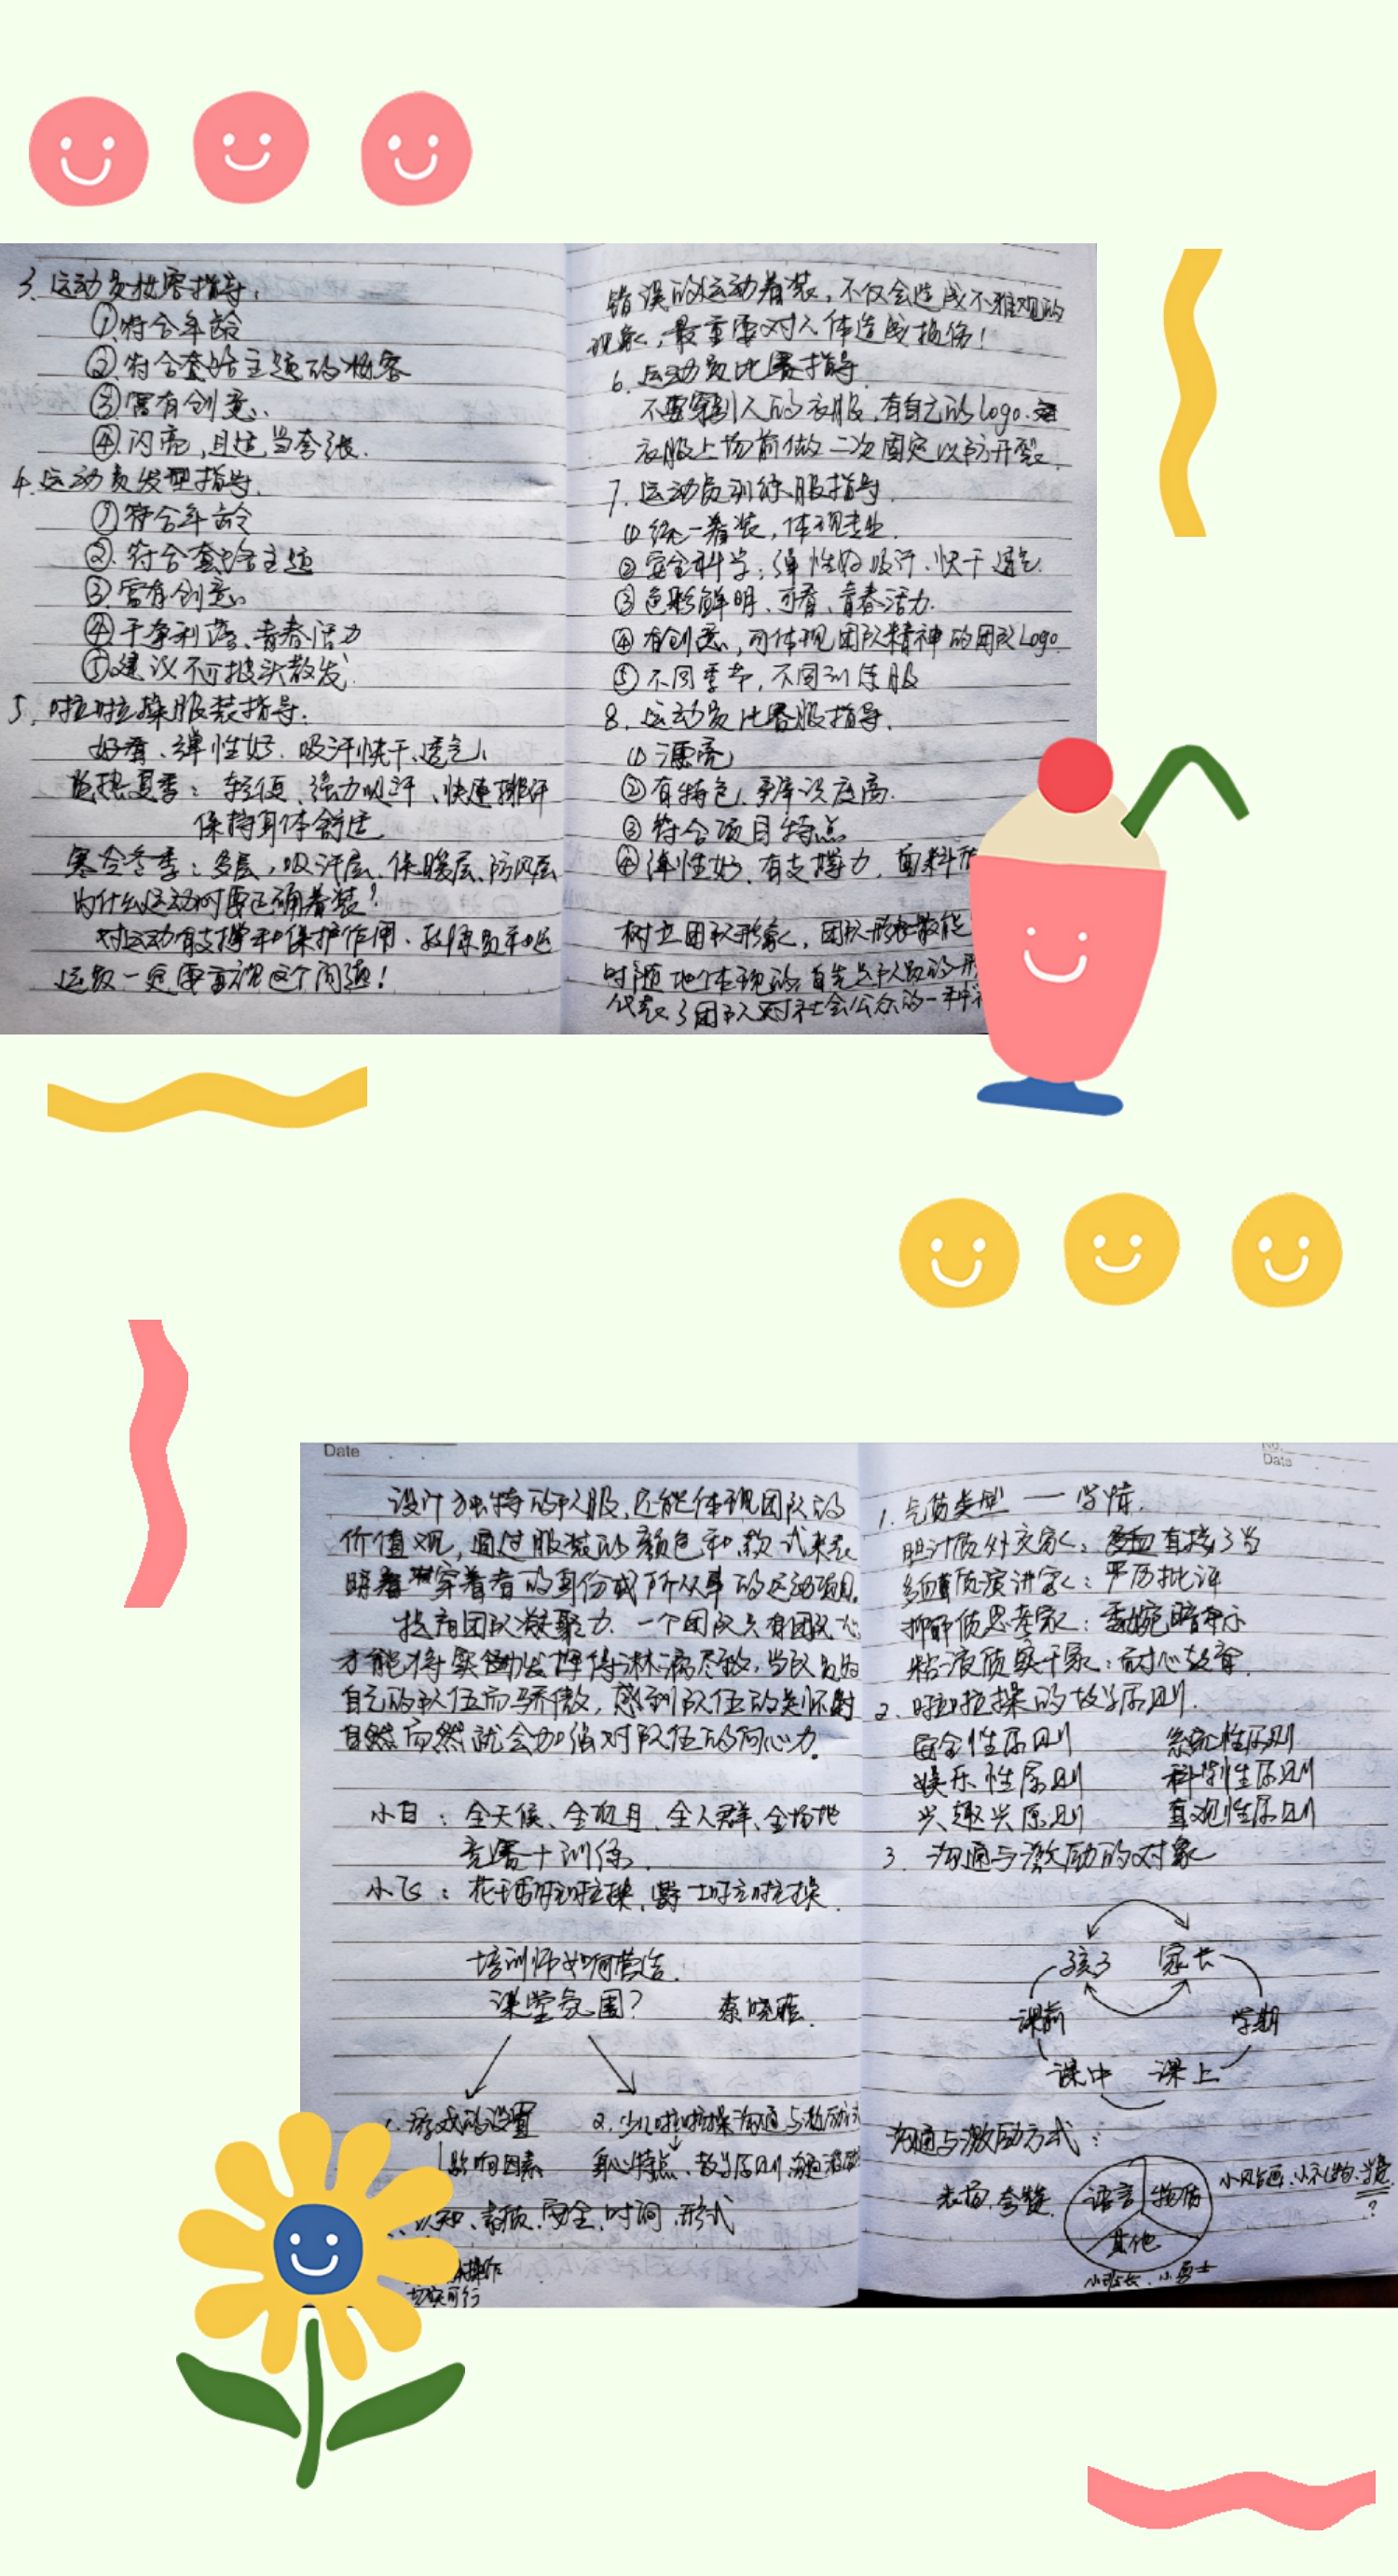 3. 运动员妆容指导.
①符合年龄
②符合套路主题的妆容
③富有创意
④闪亮,且适当夸张.
4. 运动员发型指导.
①符合年龄
②符合套路主题
③富有创意
④干净利落、青春活力
⑤建议不可披头散发.
5. 啦啦操服装指导.
好看、弹性好、吸汗快干、透气
炎热夏季:轻便、强力吸汗、快速排汗
保持身体舒适
寒冷冬季:多层,吸汗层、保暖层、防风层
为什么运动时要正确着装?
对运动有支撑和保护作用、教练员和运
运员一定要重视这个问题!
错误的运动着装,不仅会造成不雅观的
现象,最重要对人体造成损伤!
6. 运动员比赛指导
不要穿别人的衣服,有自己的logo.
衣服上场前做二次固定以防开裂.
7. 运动员训练服指导.
①统一着装,体现专业.
②安全科学:弹性好吸汗、快干透气.
③色彩鲜明、可看、青春活力.
④有创意,可体现团队精神的团队Logo
⑤不同季节,不同训练服
8. 运动员比赛服指导.
①漂亮
②有特色、辨识度高.
③符合项目特点
④弹性好、有支撑力、面料
树立团队形象,团队形象能
时随地体现的,首先是队服的一
代表了团队对社会公众的一种
Date
设计独特的队服,还能体现团队的
价值观,通过服装的颜色和款式来表
穿着者的身份或所从事的运动项目.
提高团队凝聚力.一个团队只有团队
才能将实力发挥得淋漓尽致,当队员为
自己的队伍而骄傲,感到队伍的关怀时
自然而然就会加强对队伍的向心力.
小白:全天候、全项目、全人群、全场地
竞赛+训练.
小飞:花球啦啦操,爵士啦啦操.
培训师如何营造
课堂氛围? 秦晓雅.
1. 游戏的设置 2. 少儿啦啦操沟通与激励方式
影响因素 身心特点、教学原则、沟通激励
认知、素质、安全、时间、形式
操作
切实可行
No.
Date
1. 气质类型——学情.
胆汁质外交家:直接了当
多血质演讲家:严厉批评
抑郁质思考家:委婉暗示
粘液质实干家:耐心教育.
2. 啦啦操的教学原则.
安全性原则 系统性原则
娱乐性原则 科学性原则
兴趣兴原则 直观性原则
3. 沟通与激励的对象
孩子 家长
课前 学期
课中 课上
沟通与激励方式:
表扬.夸赞. 语言 物质 小贴画、小礼物、
?
其他
小班长、小勇士